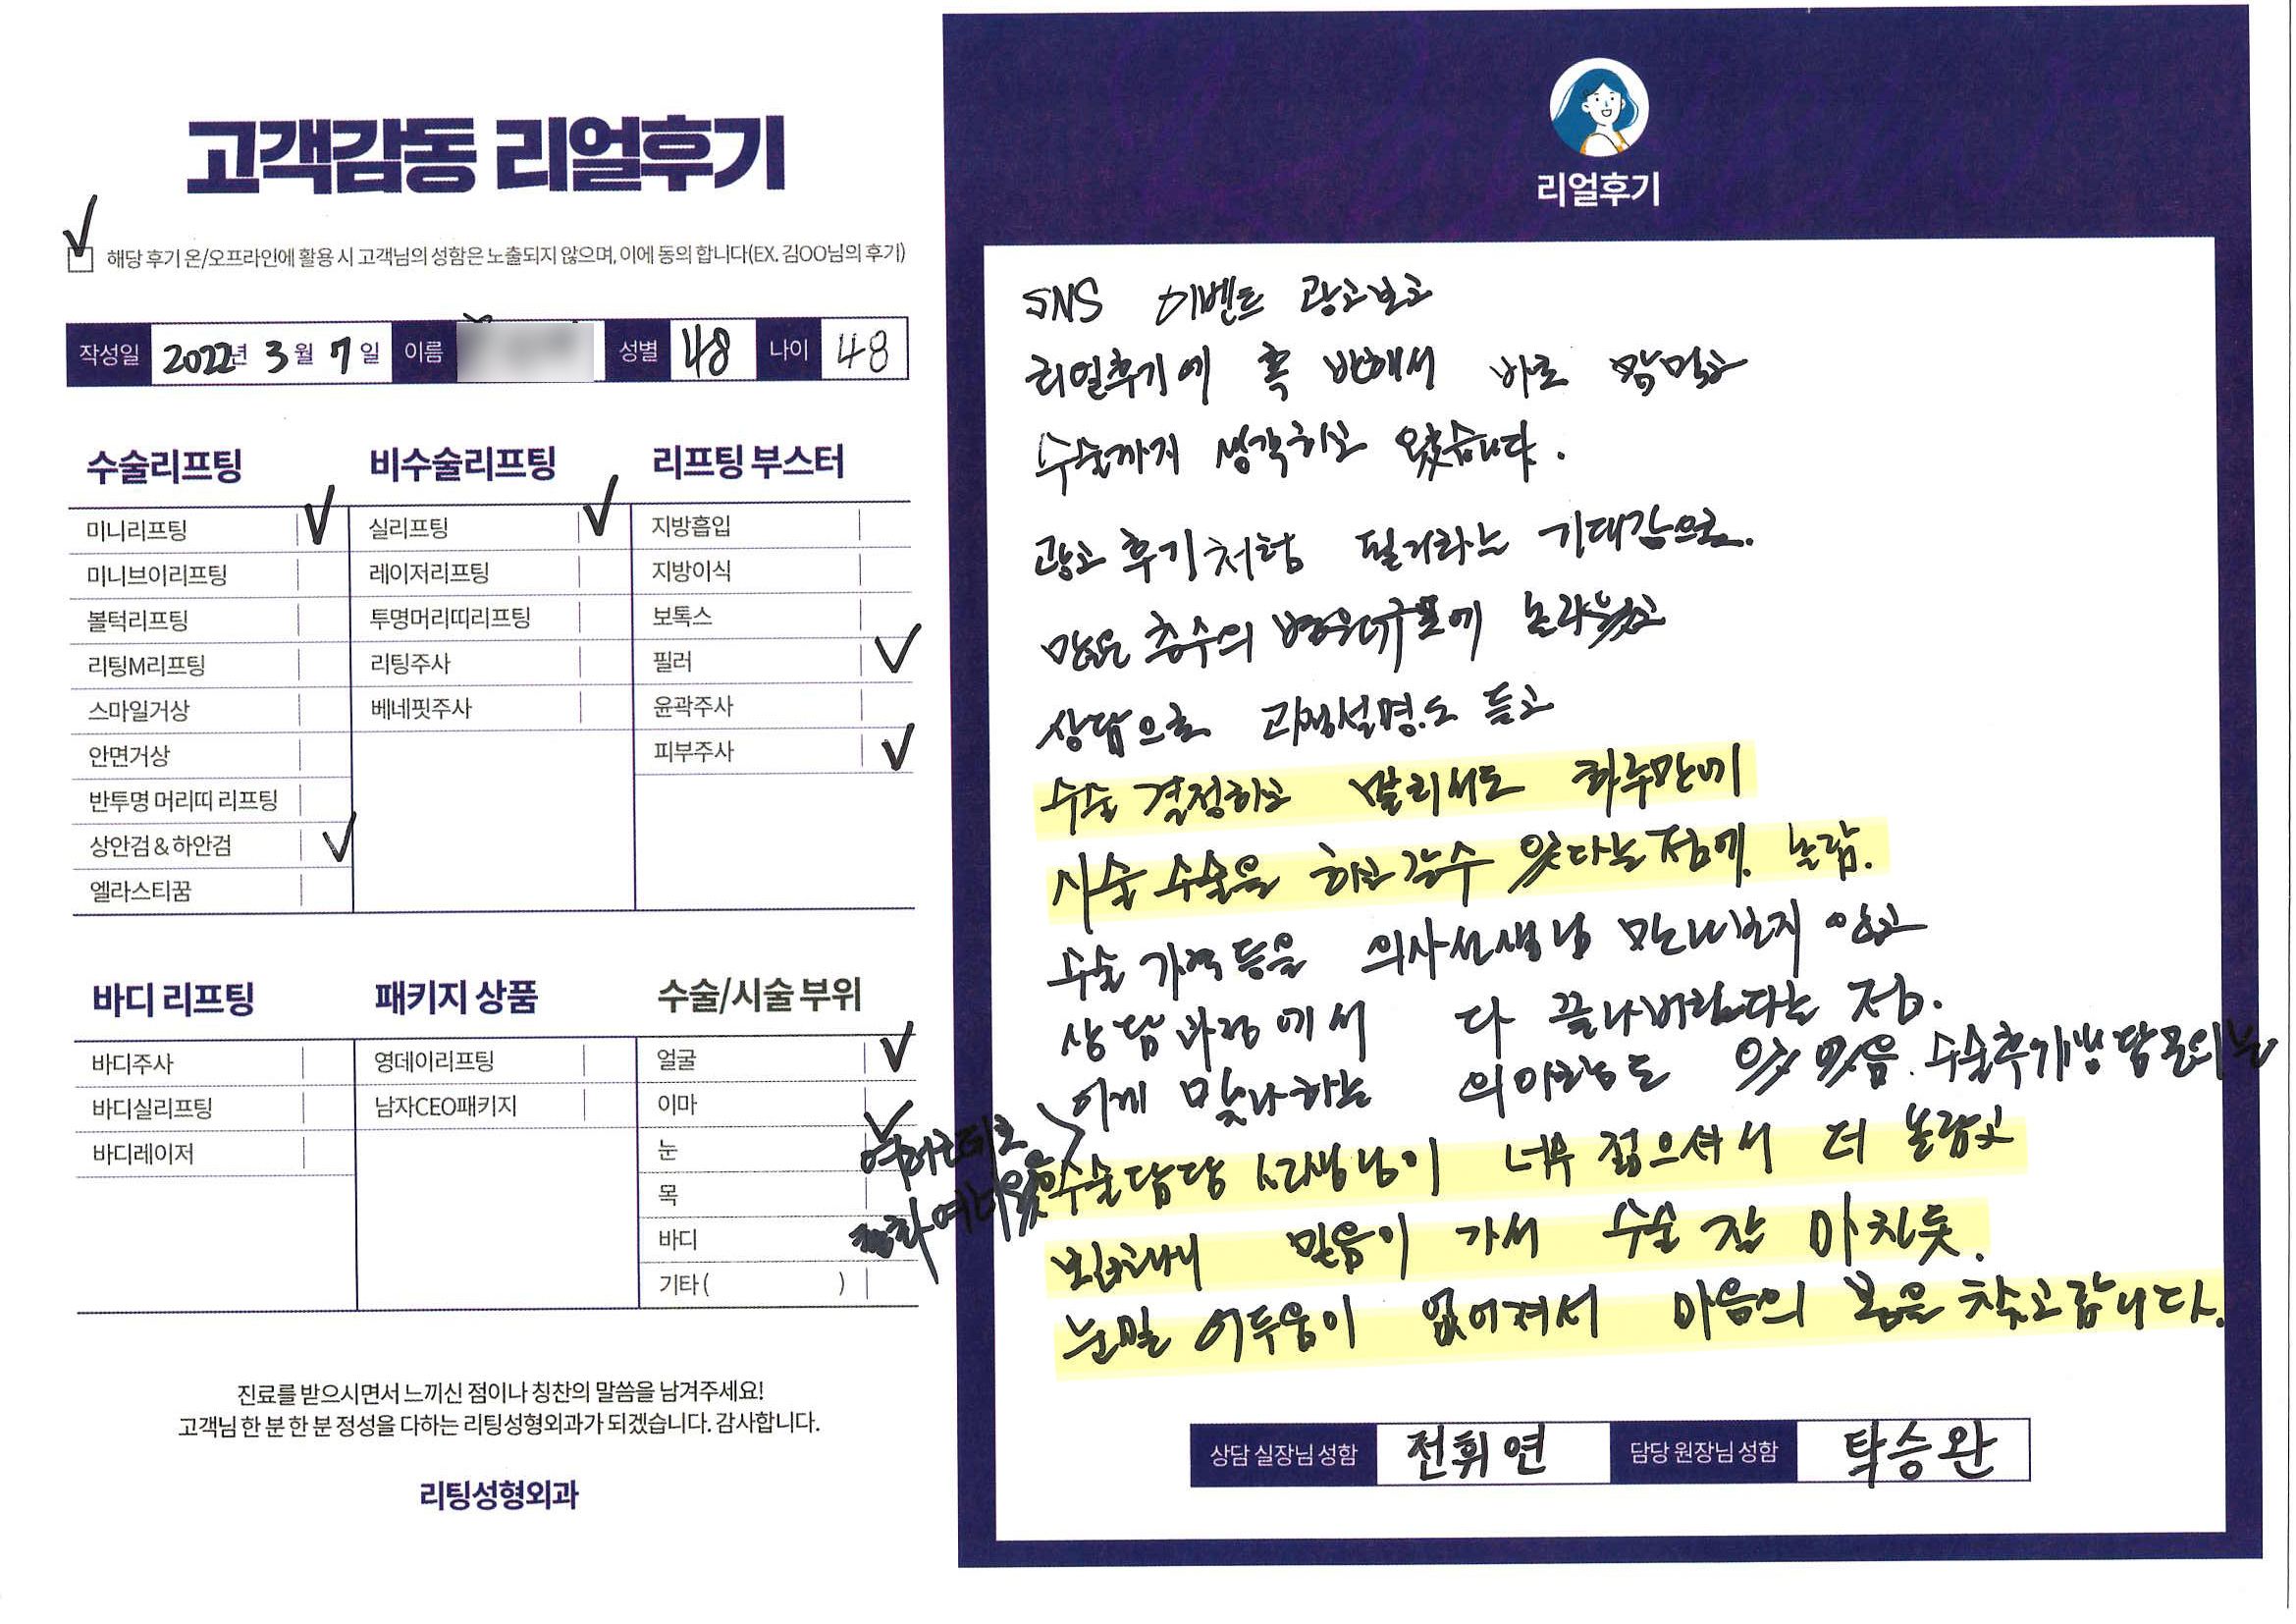 고객감동 리얼후기
해당 후기 온/오프라인에 활용 시 고객님의 성함은 노출되지 않으며, 이에 동의 합니다(EX. 김OO님의 후기)
작성일 2022년 3월 7일 이름 성별 48 나이 48
수술리프팅
미니리프팅
미니브이리프팅
볼턱리프팅
리팅M리프팅
스마일거상
안면거상
반투명 머리띠 리프팅
상안검 & 하안검
엘라스티꿈
비수술리프팅
실리프팅
레이저리프팅
투명머리띠리프팅
리팅주사
베네핏주사
리프팅 부스터
지방흡입
지방이식
보톡스
필러
윤곽주사
피부주사
바디 리프팅
바디주사
바디실리프팅
바디레이저
패키지 상품
영데이리프팅
남자CEO패키지
수술/시술 부위
얼굴
이마
눈
목
바디
기타 ( )
진료를 받으시면서 느끼신 점이나 칭찬의 말씀을 남겨주세요!
고객님 한 분 한 분 정성을 다하는 리팅성형외과가 되겠습니다. 감사합니다.
리팅성형외과
리얼후기
SNS 이벤트 광고보고
리얼후기에 혹 반해서 바로 맘먹고
수술까지 생각하고 왔습니다.
광고 후기처럼 되리라는 기대감으로.
많은 층수의 병원규모에 놀라웠고
상담으로 과정설명도 듣고
수술 결정하고 멀리서도 하루만에
시술 수술을 하고 갈수 있다는 점에 놀람.
수술 가격 등을 의사선생님 만나보지 않고
상담과정에서 다 끝나버린다는 점.
이게 맞나하는 의아함도 있었음. 수술후기상담문의는
수술담당 선생님이 너무 젊으셔서 더 놀랐고
믿음이 가서 수술 잘 마친듯.
눈밑 어두움이 없어져서 마음의 봄을 찾고갑니다.
상담 실장님 성함 전휘연 담당 원장님 성함 탁승완